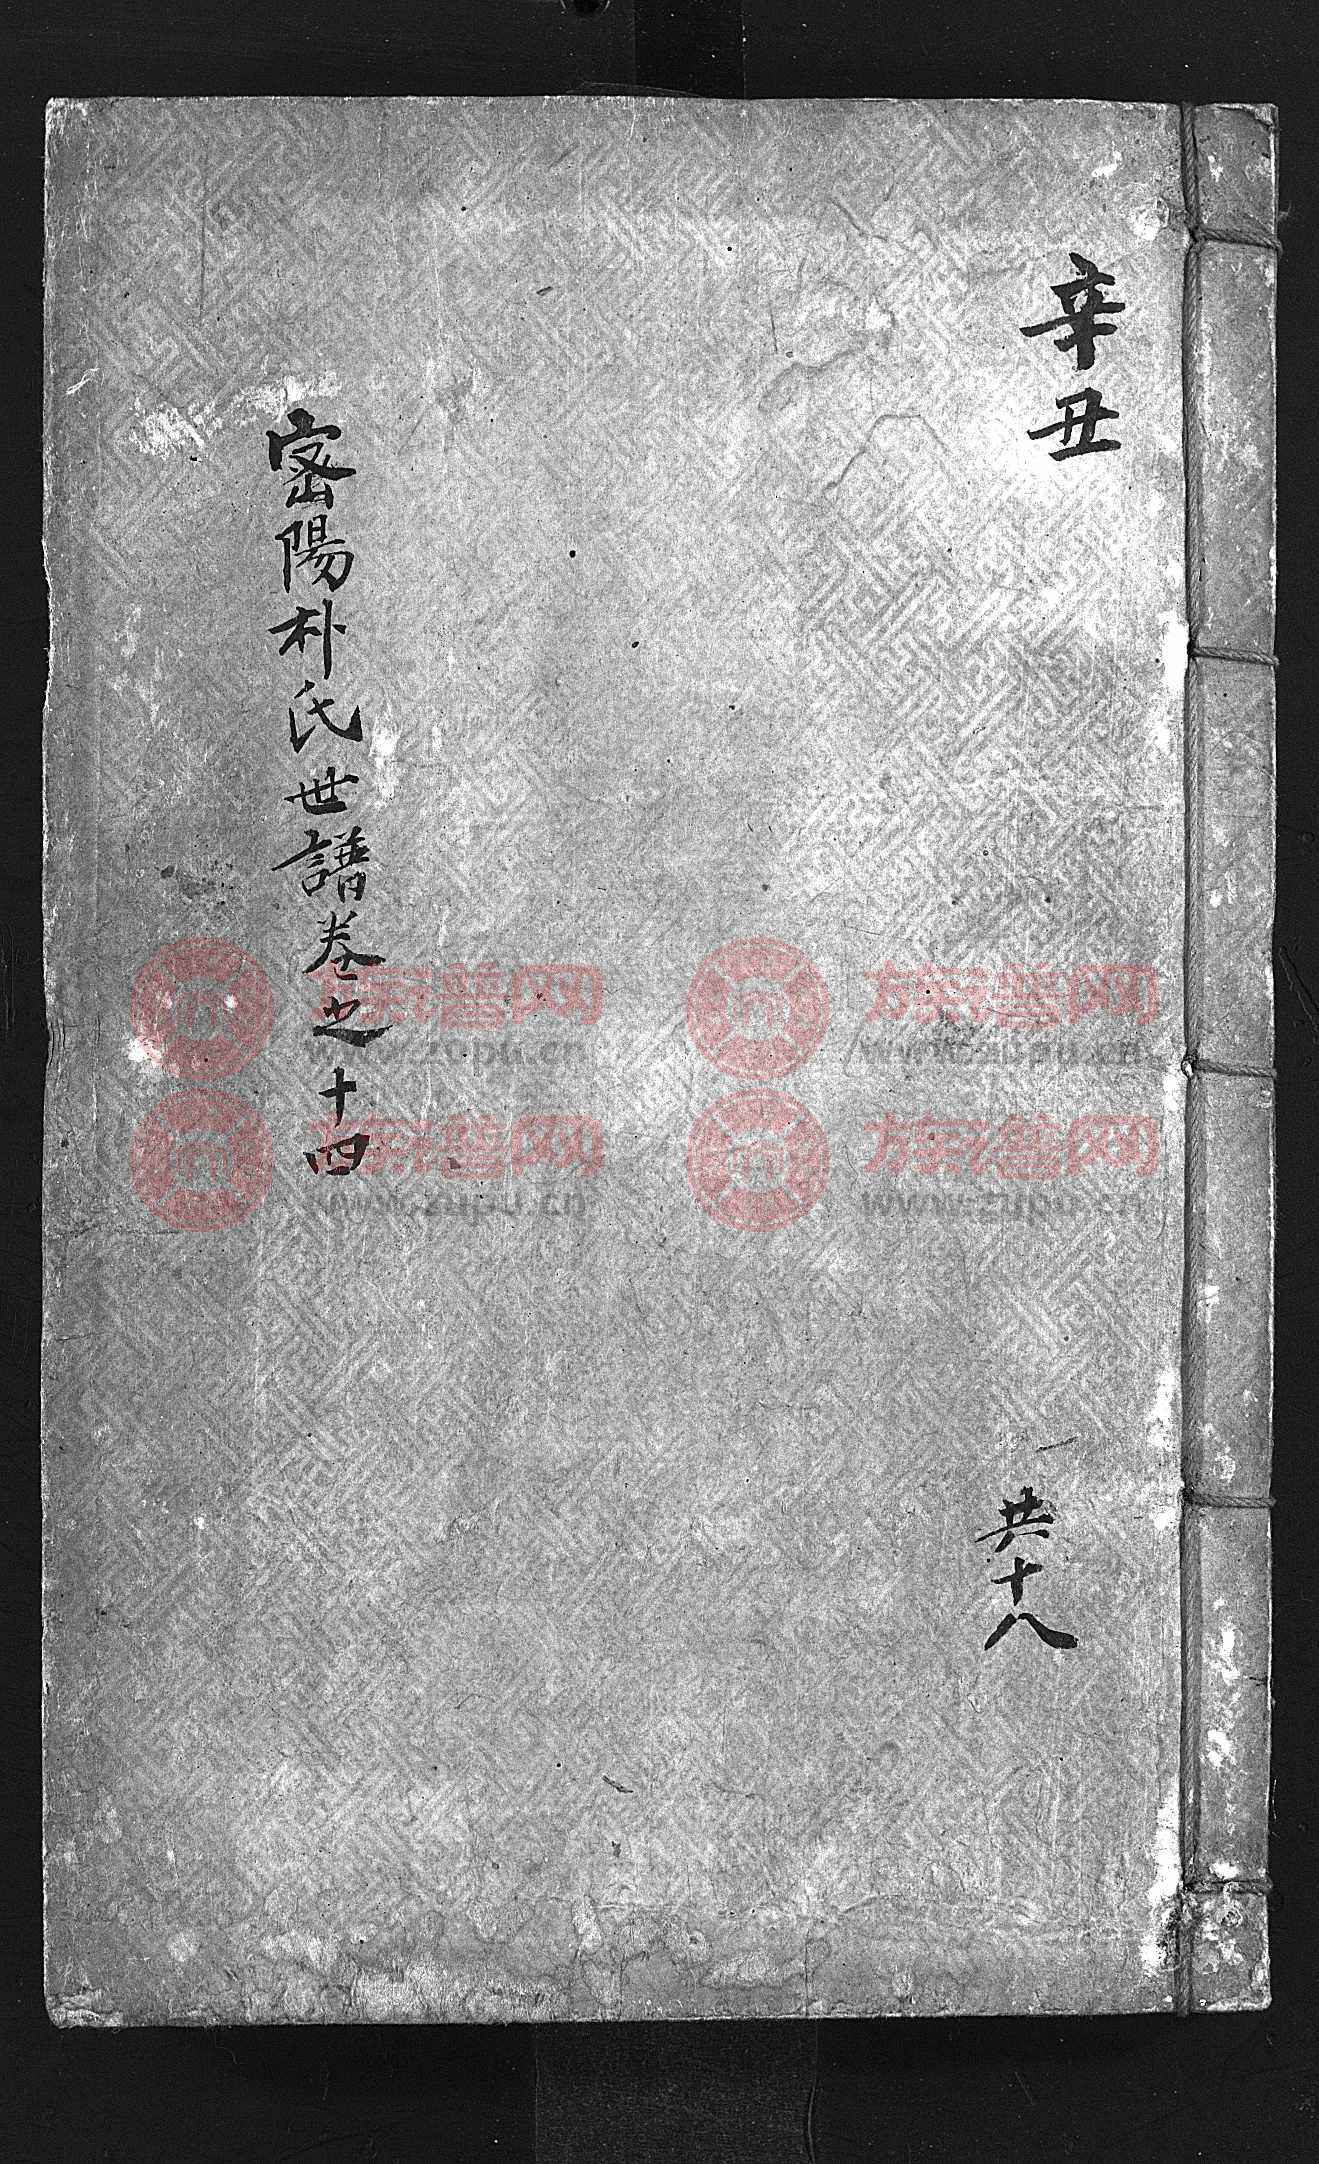 辛丑
共十八
密陽朴氏世譜卷之十四
族譜网 族譜网
www.zupu.cn www.zupu.cn
族譜网 族譜网
www.zupu.cn www.zupu.cn